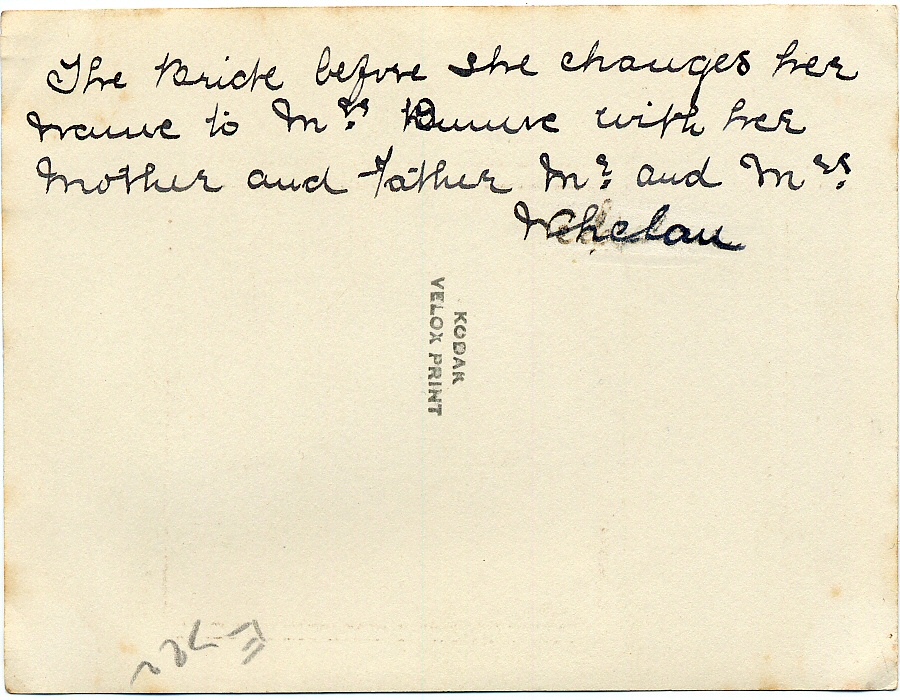 The Bride before she changes her
name to Mrs with her
Mother and Father Mr and Mrs
Whelan
KODAK
VELOX PRINT